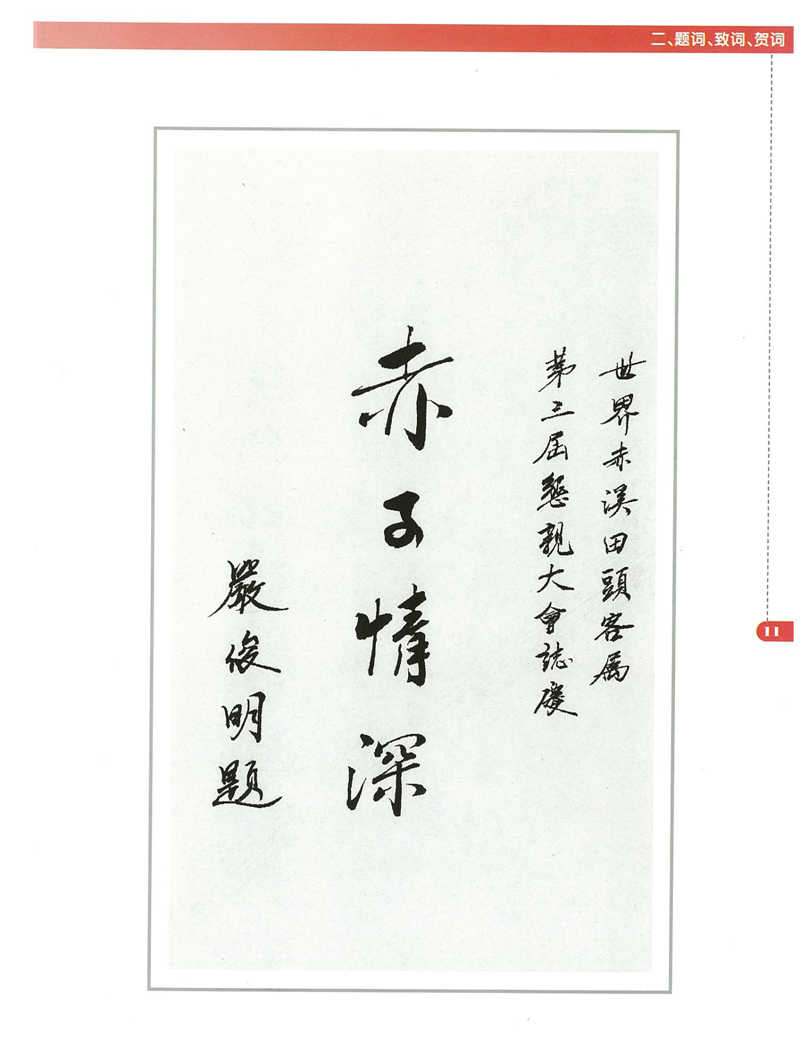 二、题词、致词、贺词
世界赤溪田頭客属
第三届懇親大會誌慶
赤子情深
嚴俊明題
11